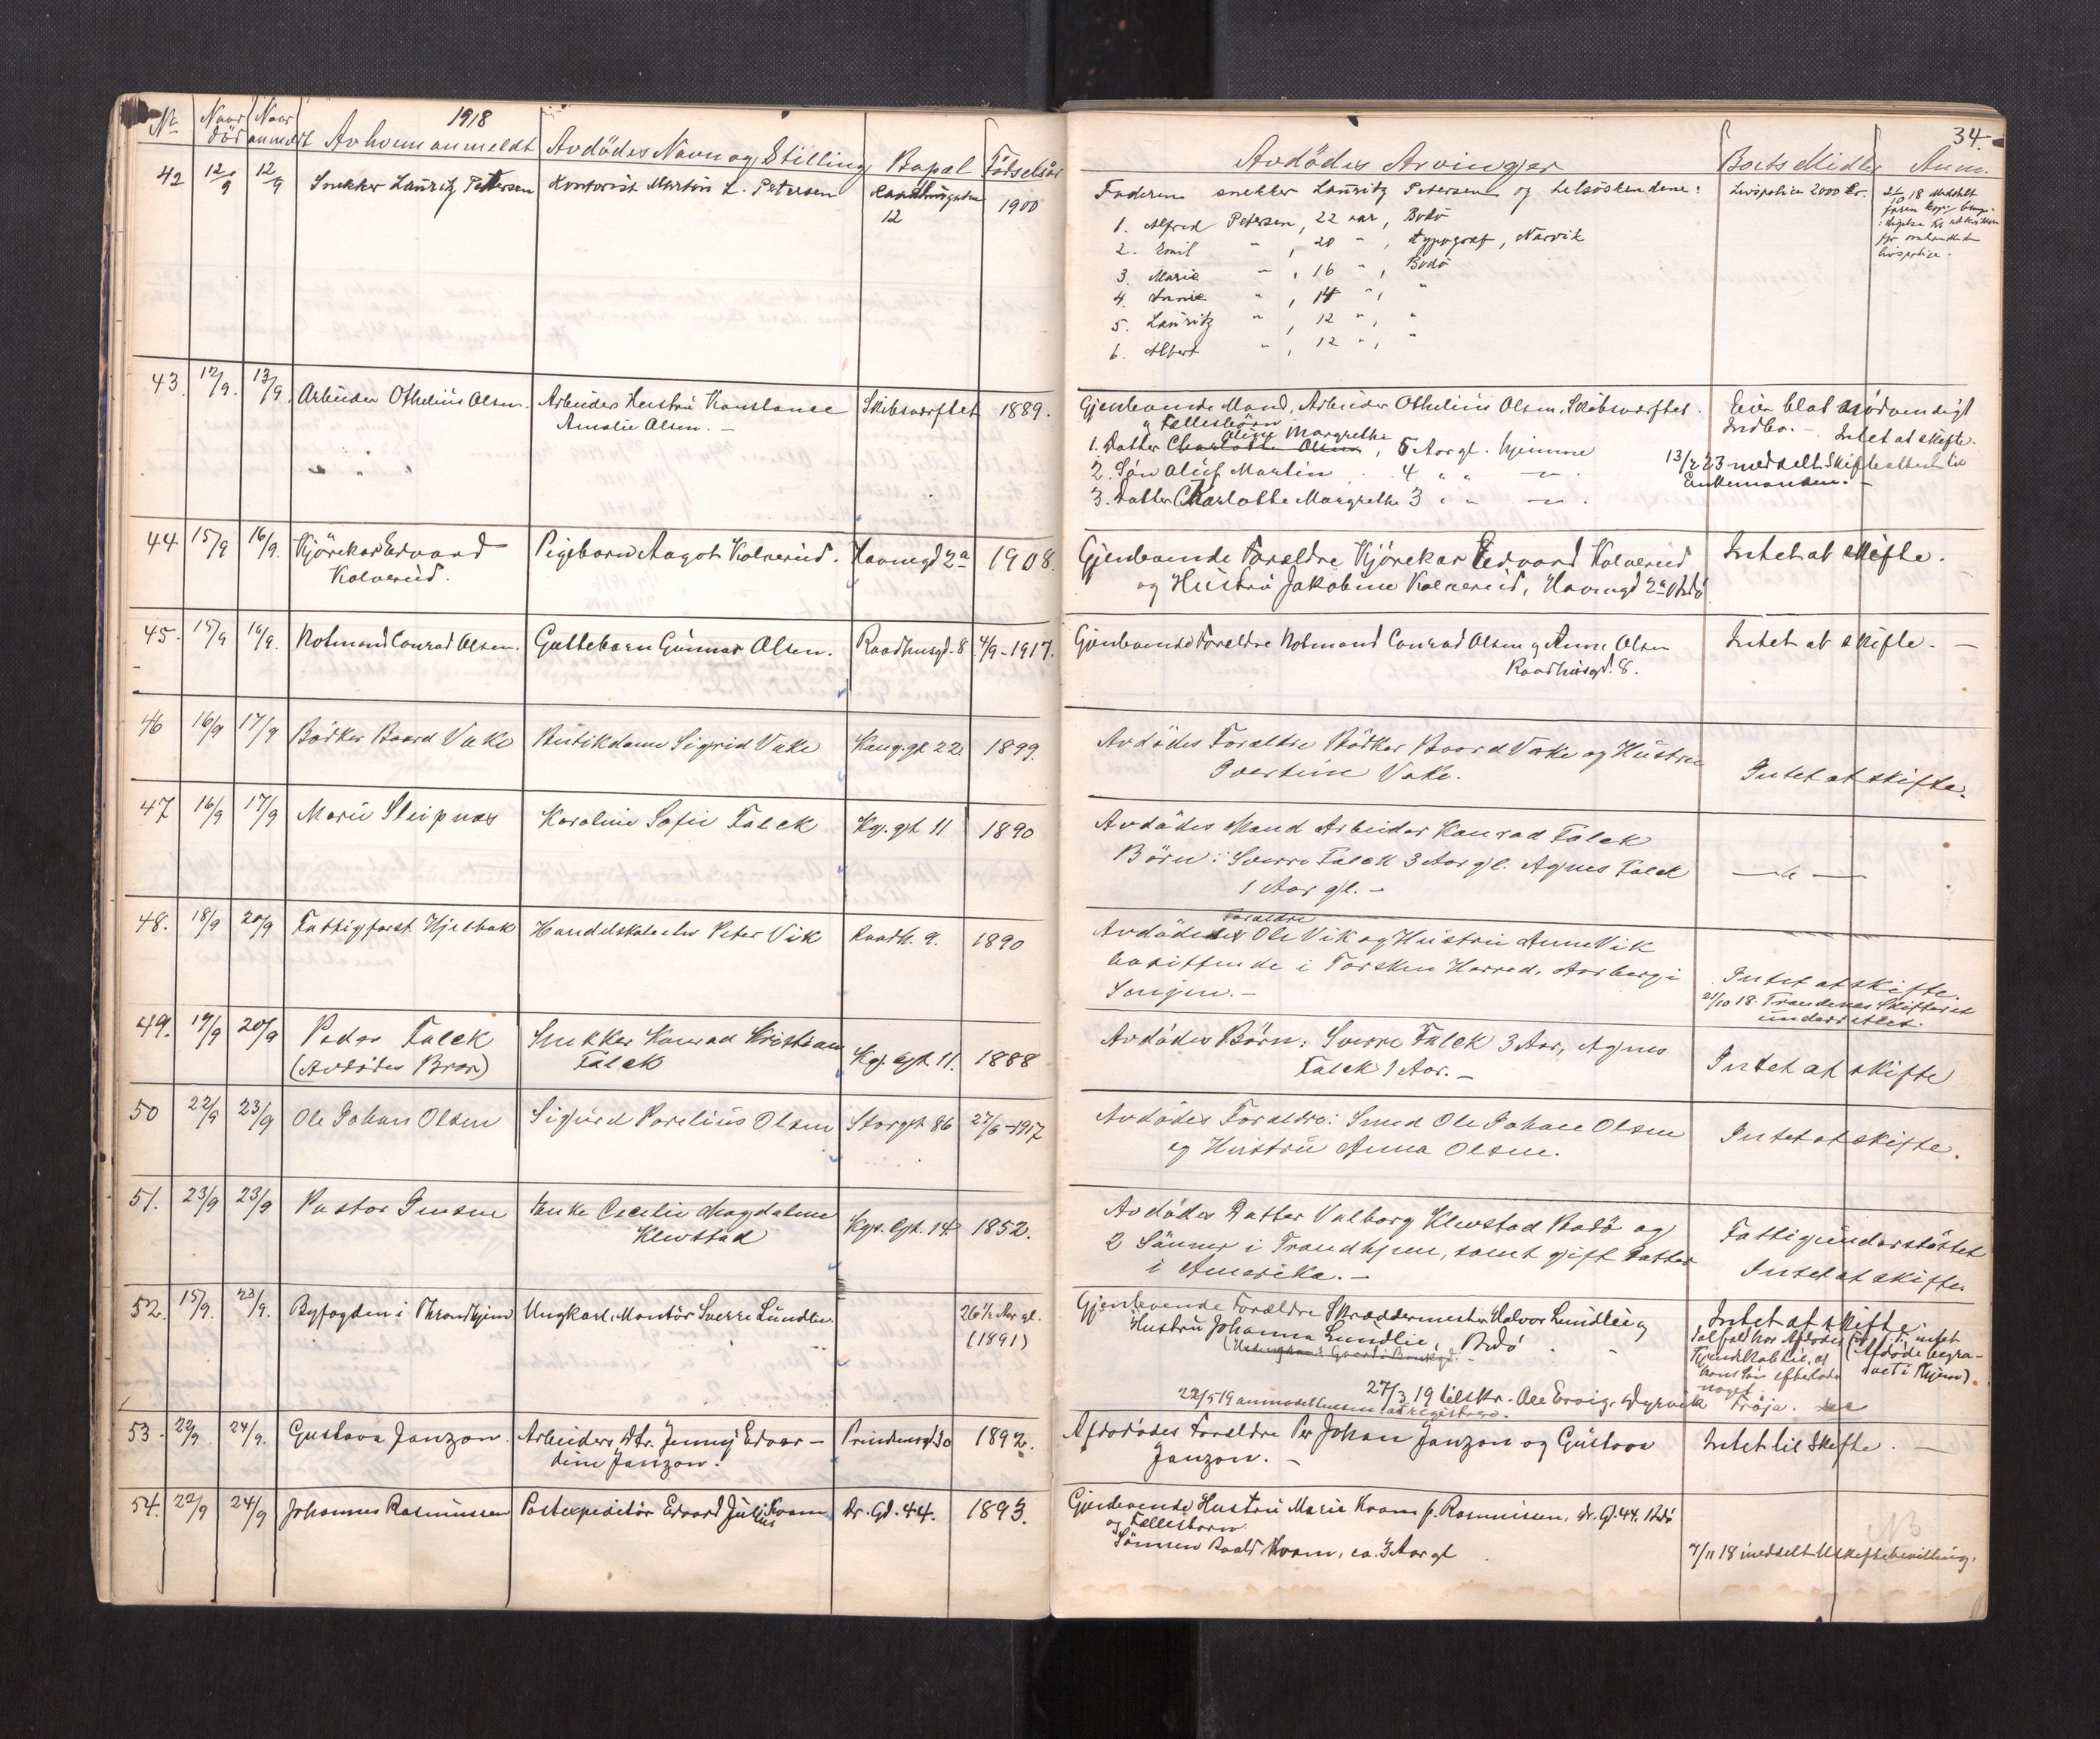 1918
34.
Nr. Naar död Naar anmeldt Av hvem anmeldt Avdödes Navn og Stilling Bopæl Födselsår
Avdödes Arvinger Boets Midler Anm.
42 12/9 12/9 Snekker Lauritz Pettersen Kontorist Martin L. Petersen 12 1900
Faderen snekker Lauritz Petersen og helsöskendene: Livspolice 2000 kr.
1. Alfred Petersen, 22 aar, Bodö
2. Emil " , 20 " , typograf, Narvik
3. Marie " , 16 " , Bodö
4. " , 14 " , "
5. Lauritz " , 12 " , "
6. Albert " , 12 " , "
livspolice.
43. 12/9. 13/9. Arbeider Othelius Olsen. Arbeider Hustru Konstanse Skibsverftet 1889.
Amalie Olsen. —
Gjenlevende Mand, Arbeider Othelius Olsen, Skibsverftet. Eier blot nödvendigt
og Fellesbörn Indbo. — Intet at skifte.
Margrethe
1. Datter Charlotte Olsen, 5 Aar gl. hjemme
2. Sön Aluf Martin . 4 " " — " —
3. Datter Charlotte Margrethe 3 " " — " —
13/2 23 meddelt Skifteattest til
Enkemanden. —
44. 15/9 16/9. Kjörekar Edvard Pigebarn Aagot Kolverud. Havnegd 2a 1908.
Kolverud.
Gjenlevende Forældre Kjörekar Edvard Kolverud Intet at skifte.
og Hustru Jakobine Kolverud, Havnegd 2a Bodö
45. 15/9 16/9. Notmand Conrad Olsen. Guttebarn Gunnar Olsen. Raadhusgd. 8 4/9-1917.
Gjenlevende Forældre Notmand Conrad Olsen og Anne Olsen Intet at skifte. —
Raadhusgd. 8.
46 16/9 17/9 Bödker Baard Vake Butikdame Sigrid Vake Kong.gt. 22 1899.
Avdödes Forældre Bödker Baard Vake og Hustru
Vake. Intet at skifte.
47 16/9 17/9 Marie Sleipnæs Karoline Sofie Falck Kg. gt. 11 1890
Avdödes Mand Arbeider Konrad Falck
Börn: Sverre Falck 3 Aar gl. Agnes Falck — " —
1 Aar gl. —
48. 18/9 20/9 Fattigforst. Hjelbak Handelskolelev Peter Vik Raadh. 9. 1890
Forældre
Avdödes Ole Vik og Hustru Anne Vik
bosittende i Torsken Herred, i
Senjen. — Intet at skifte.
21/10 18. Trondenes Skifteret
underrettet.
49. 19/9 20/9 Peder Falck Snekker Konrad Kristian Kg. Gt. 11. 1888
(Avdödes Bror) Falck
Avdödes Börn: Sverre Falck 3 Aar, Agnes
Falck 1 Aar. — Intet at skifte
50 22/9 23/9 Ole Johan Olsen Sigurd Parelius Olsen Storgt. 86 27/6-1917
Avdödes Forældre: Smed Ole Johan Olsen
og Hustru Anna Olsen. Intet at skifte.
51. 23/9 23/9 Pastor Jensen Enke Cecelie Magdalene Kgs. Gt. 14. 1852.
Klevstad
Avdödes Datter Valborg Klevstad Bodö og Fattigunderstöttet
2 Sönner i Trondhjem, samt gift Datter
i Amerika. — Intet at skifte.
52. 15/9. 23/9. Byfogden i Throndhjem Ungkarl, Montör Sverre Lundlie. 26 1/2 Aar gl.
(1891)
Gjenlevende Forældre Skræddermester Halvor Lundlie og Intet at skifte.
Hustru Johanna Lundlie, Bodö
27/3 19 Ole Ervig, Dyrvik Fröja.
22/5 19
53. 22/9 24/9. Gustava Janzon. Arbeiders Dtr. Jenny Edvar- Prindensgd. 30 1892.
dine Janzon.
Afdödes Forældre Per Johan Janzon og Gustava Intet til Skifte. —
Janzon. —
54. 22/9 24/9 Johannes Rasmussen Postexpeditör Edvard Julius Kvam Dr. Gd. 44. 1893.
Gjenlevende Hustru Marie Kvam f. Rasmussen, Dr. Gd. 44. Bodö
og Fellesbarn
Sönnen Roald Kvam, ca. 3 Aar gl
NB
7/11 18 meddelt Uskiftebevilling.